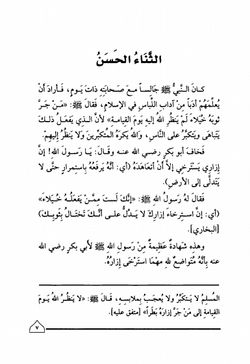 الثَّنَاءُ الْحَسَنُ
كَانَ النَّبِيُّ ﷺ جَالِساً مَعَ صَحَابَتِهِ ذَاتَ يَوْمٍ، فَأَرَادَ أَنْ
يُعَلِّمَهُمْ أَدَباً مِنْ آدَابِ اللِّبَاسِ فِي الإِسْلَامِ، فَقَالَ ﷺ: «مَنْ جَرَّ
ثَوْبَهُ خُيَلَاءَ لَمْ يَنْظُرِ اللهُ إِلَيْهِ يَوْمَ الْقِيَامَةِ» لأَنَّ الَّذِي يَفْعَلُ ذَلِكَ
يَتَبَاهَى وَيَتَكَبَّرُ عَلَى النَّاسِ، وَاللهُ يَكْرَهُ الْمُتَكَبِّرِينَ وَلَا يَنْظُرُ إِلَيْهِمْ.
فَخَافَ أَبُو بَكْرٍ رضي الله عنه وَقَالَ: يَا رَسُولَ اللهِ! إِنَّ
إِزَارِي يَسْتَرْخِي إِلَّا أَنْ أَتَعَاهَدَهُ (أَي: أَنَّهُ يَرْفَعُهُ بِاسْتِمْرَارٍ حَتَّى لَا
يَتَدَلَّى إِلَى الأَرْضِ).
فَقَالَ لَهُ رَسُولُ اللهِ ﷺ: «إِنَّكَ لَسْتَ مِمَّنْ يَفْعَلُهُ خُيَلَاءَ»
(أي: إِنَّ اسْتِرْخَاءَ إِزَارِكَ لَا يَدُلُّ عَلَى أَنَّكَ تَخْتَالُ بِثَوْبِكَ)
[البخاري].
وهذِهِ شَهَادَةٌ عَظِيمَةٌ مِنْ رَسُولِ اللهِ ﷺ لِأَبِي بَكْرٍ رضي الله
عنه بِأَنَّهُ مُتَوَاضِعٌ لِلهِ مَهْمَا اسْتَرْخَى إِزَارُهُ.
الْمُسْلِمُ لَا يَتَكَبَّرُ وَلَا يُعْجَبُ بِمَلَابِسِهِ، قَالَ ﷺ: «لَا يَنْظُرُ اللهُ يَوْمَ
الْقِيَامَةِ إِلَى مَنْ جَرَّ إِزَارَهُ بَطَراً» [متفق عليه].
٧